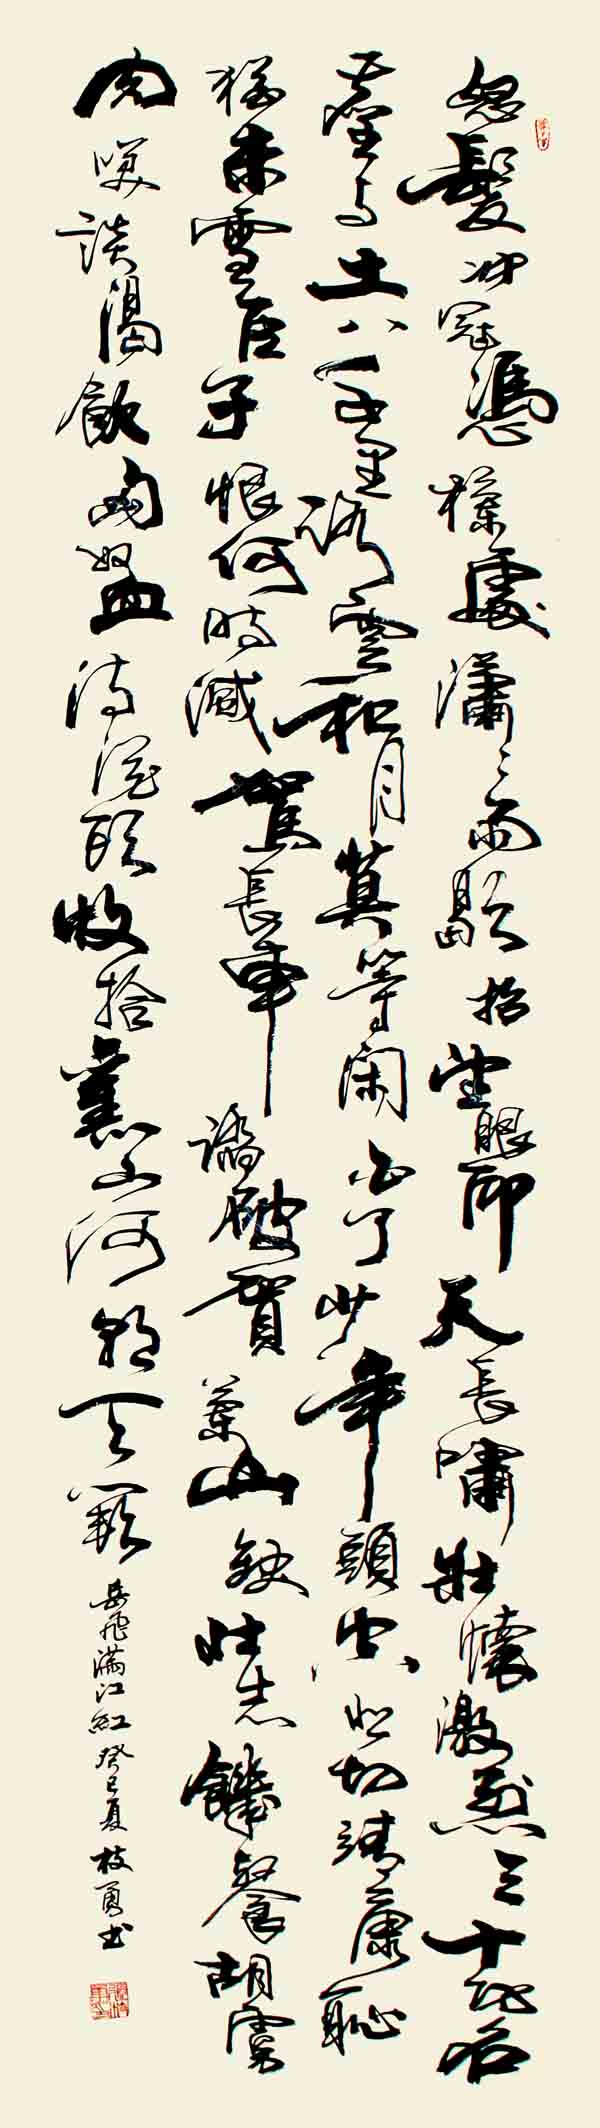 怒髮冲冠憑欄處瀟々雨歇抬望眼仰天長嘯壯懷激烈三十功名
塵与土八千里路雲和月莫等閑白了少年頭空悲切靖康恥
猶未雪臣子恨何時滅駕長車踏破賀蘭山缺壯志饑餐胡虜
肉笑談渴飲匈奴血待從頭收拾舊山河朝天闕
岳飛滿江紅癸巳夏枝勇书